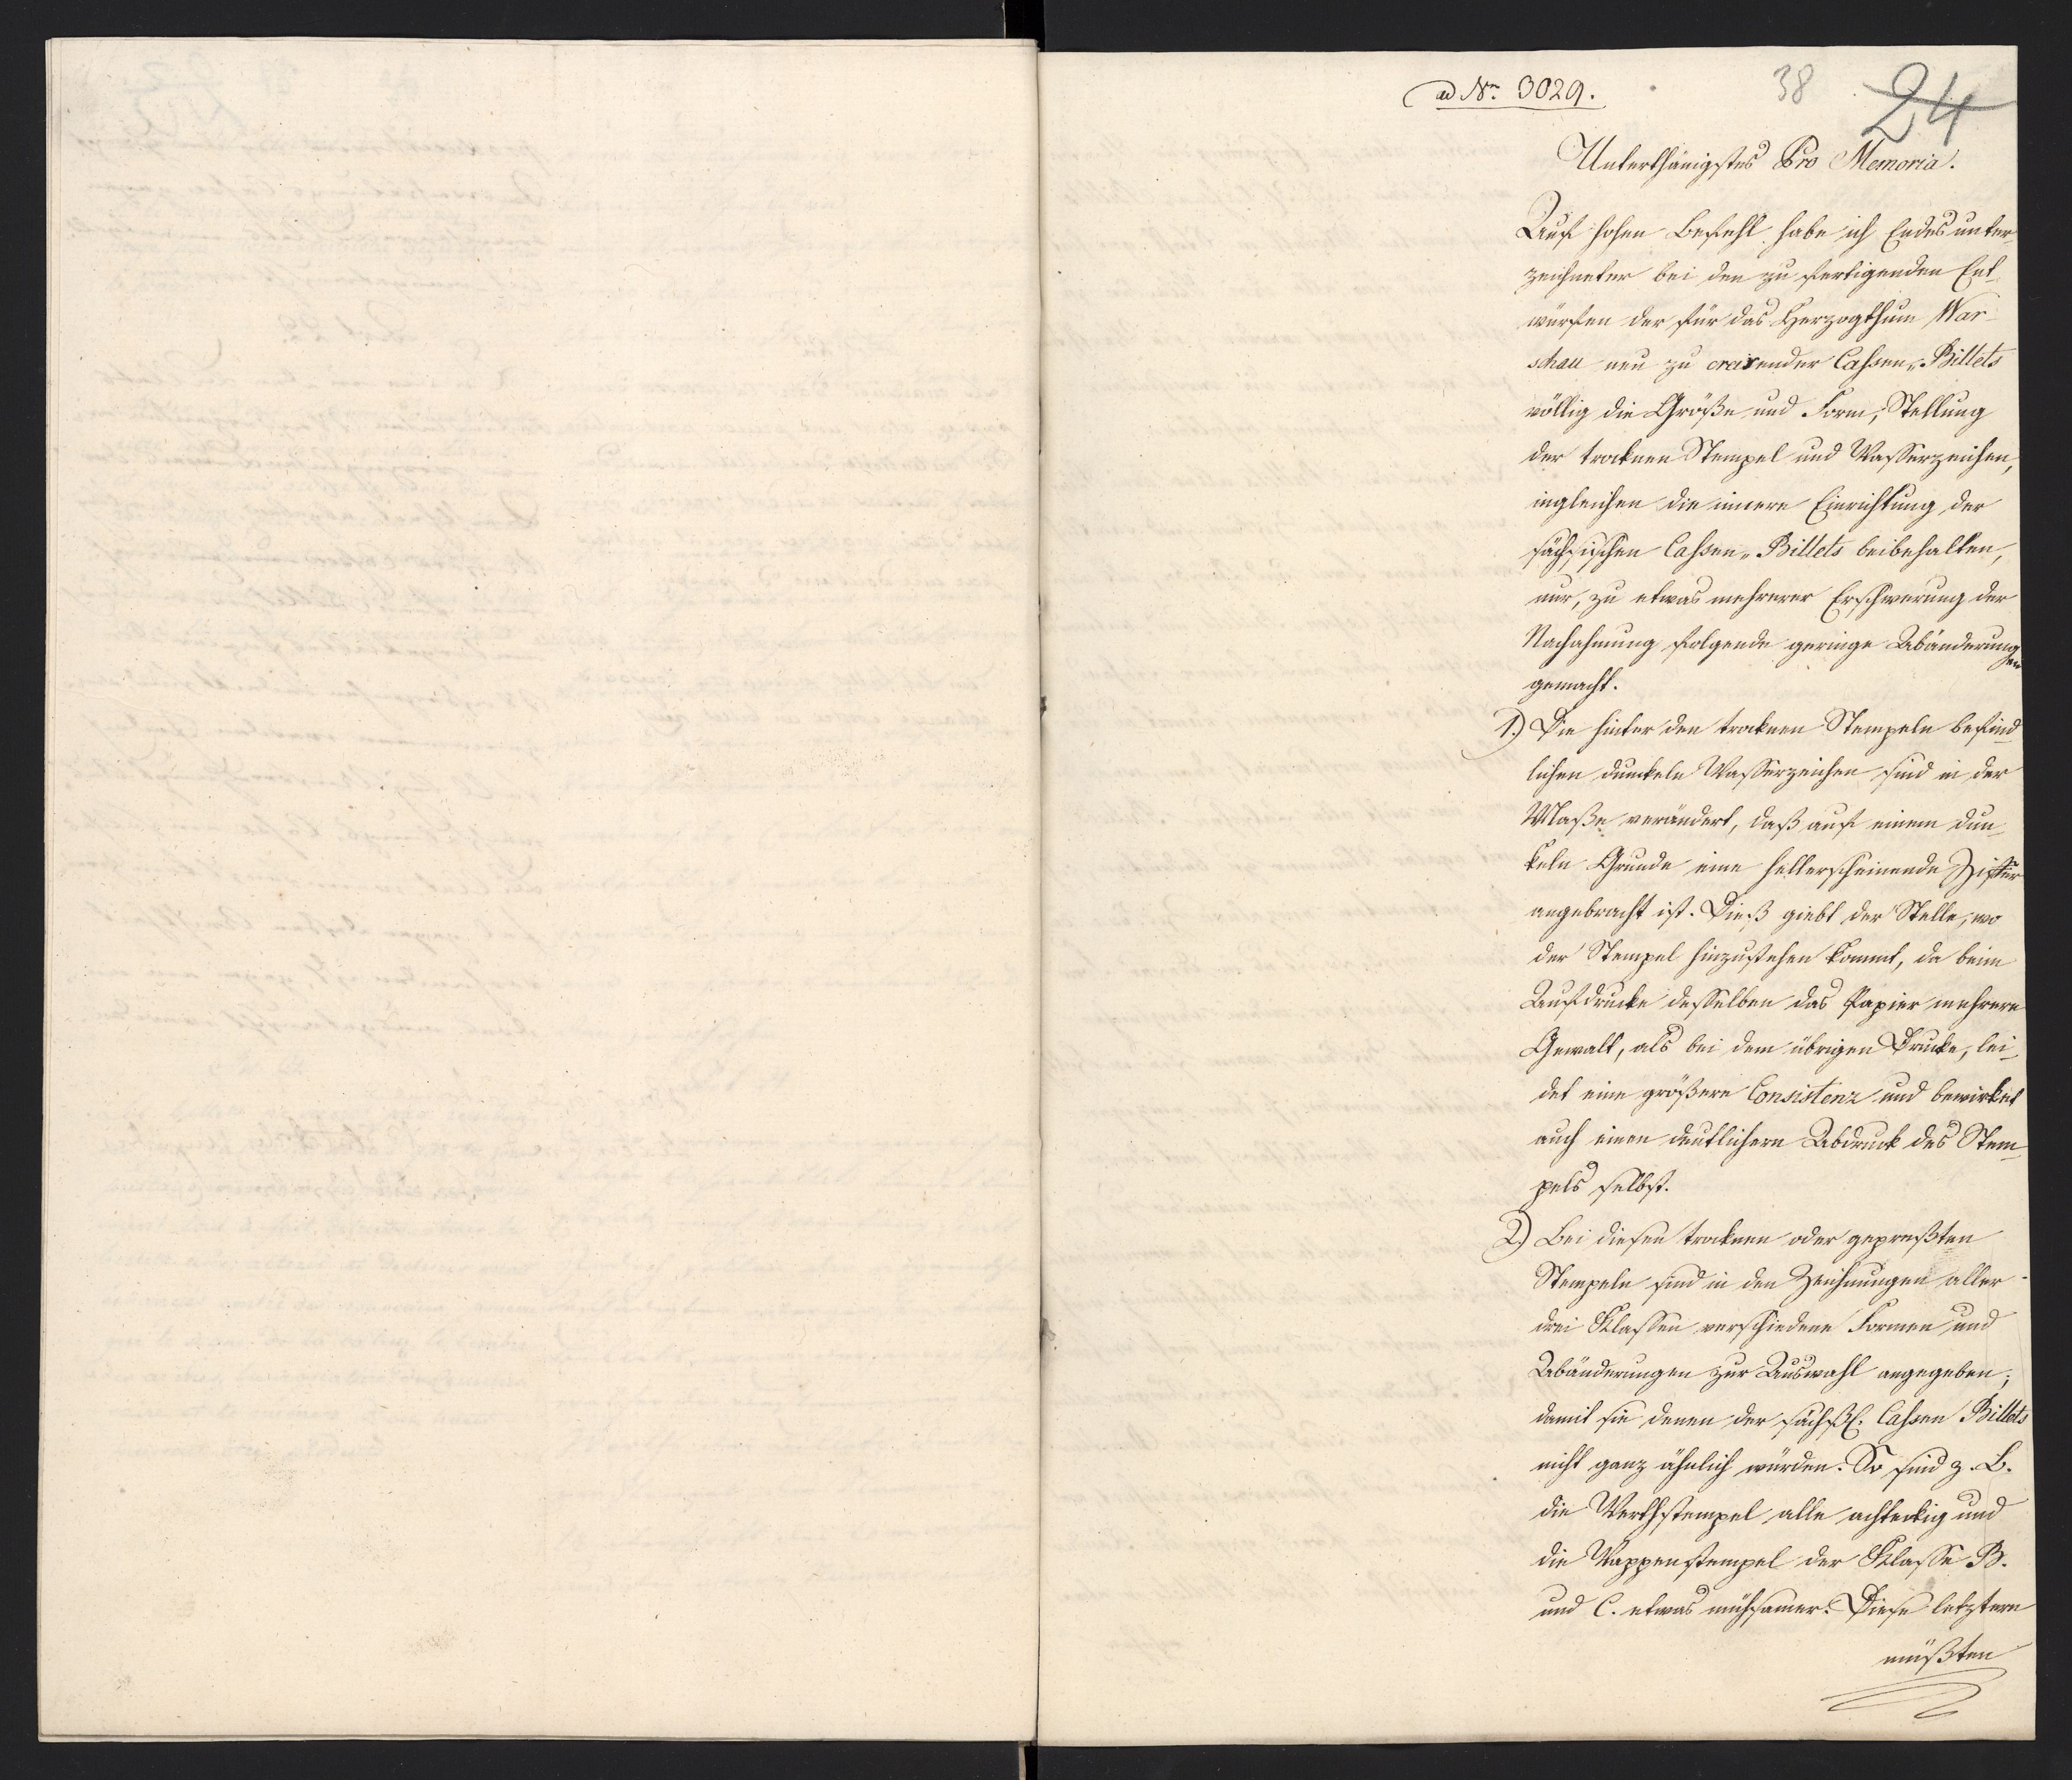 ad Nr. 3029.
38
24
Unterthänigstes Pro Memoria.
Auf hohen Befehl habe ich Endesunter-
zeichneter bei den zu fertigenden Ent-
würfen der für das Herzogthum War-
schau neu zu creirender Cassen-Billets
völlig die Größe und Form, Stellung
der trocknen Stempel und Wasserzeichen,
ingleichen die innere Einrichtung der
sächsischen Cassen-Billets beibehalten,
nur, zu etwas mehrerer Erschwerung der
Nachahmung folgende geringe Abänderungen
gemacht.
1.) Die hinter den trocknen Stempeln befind-
lichen dunckeln Wasserzeichen sind in der
Maße verändert, daß auf einem dun-
keln Grunde eine hellerscheinende Ziffer
angebracht ist. Dieß giebt der Stelle, wo
der Stempel hinzustehen kommt, da beim
Aufdrucke desselben das Papier mehrere
Gewalt, als bei dem übrigen Drucke, lei-
det eine größere Consistenz und bewirket
auch einen deutlichern Abdruck des Stem-
pels selbst.
2.) Bei diesen trocknen oder gepreßten
Stempeln sind in den Zeichnungen aller
drei Klassen verschiedene Formen und
Abänderungen zur Auswahl angegeben;
damit sie denen der sächß. Cassen Billets
nicht ganz ähnlich würden. So sind z. B.
die Werthstempel alle achteckig und
die Wappenstempel der Klasse B.
und C. etwas mühsamer. Diese letztern
müßten